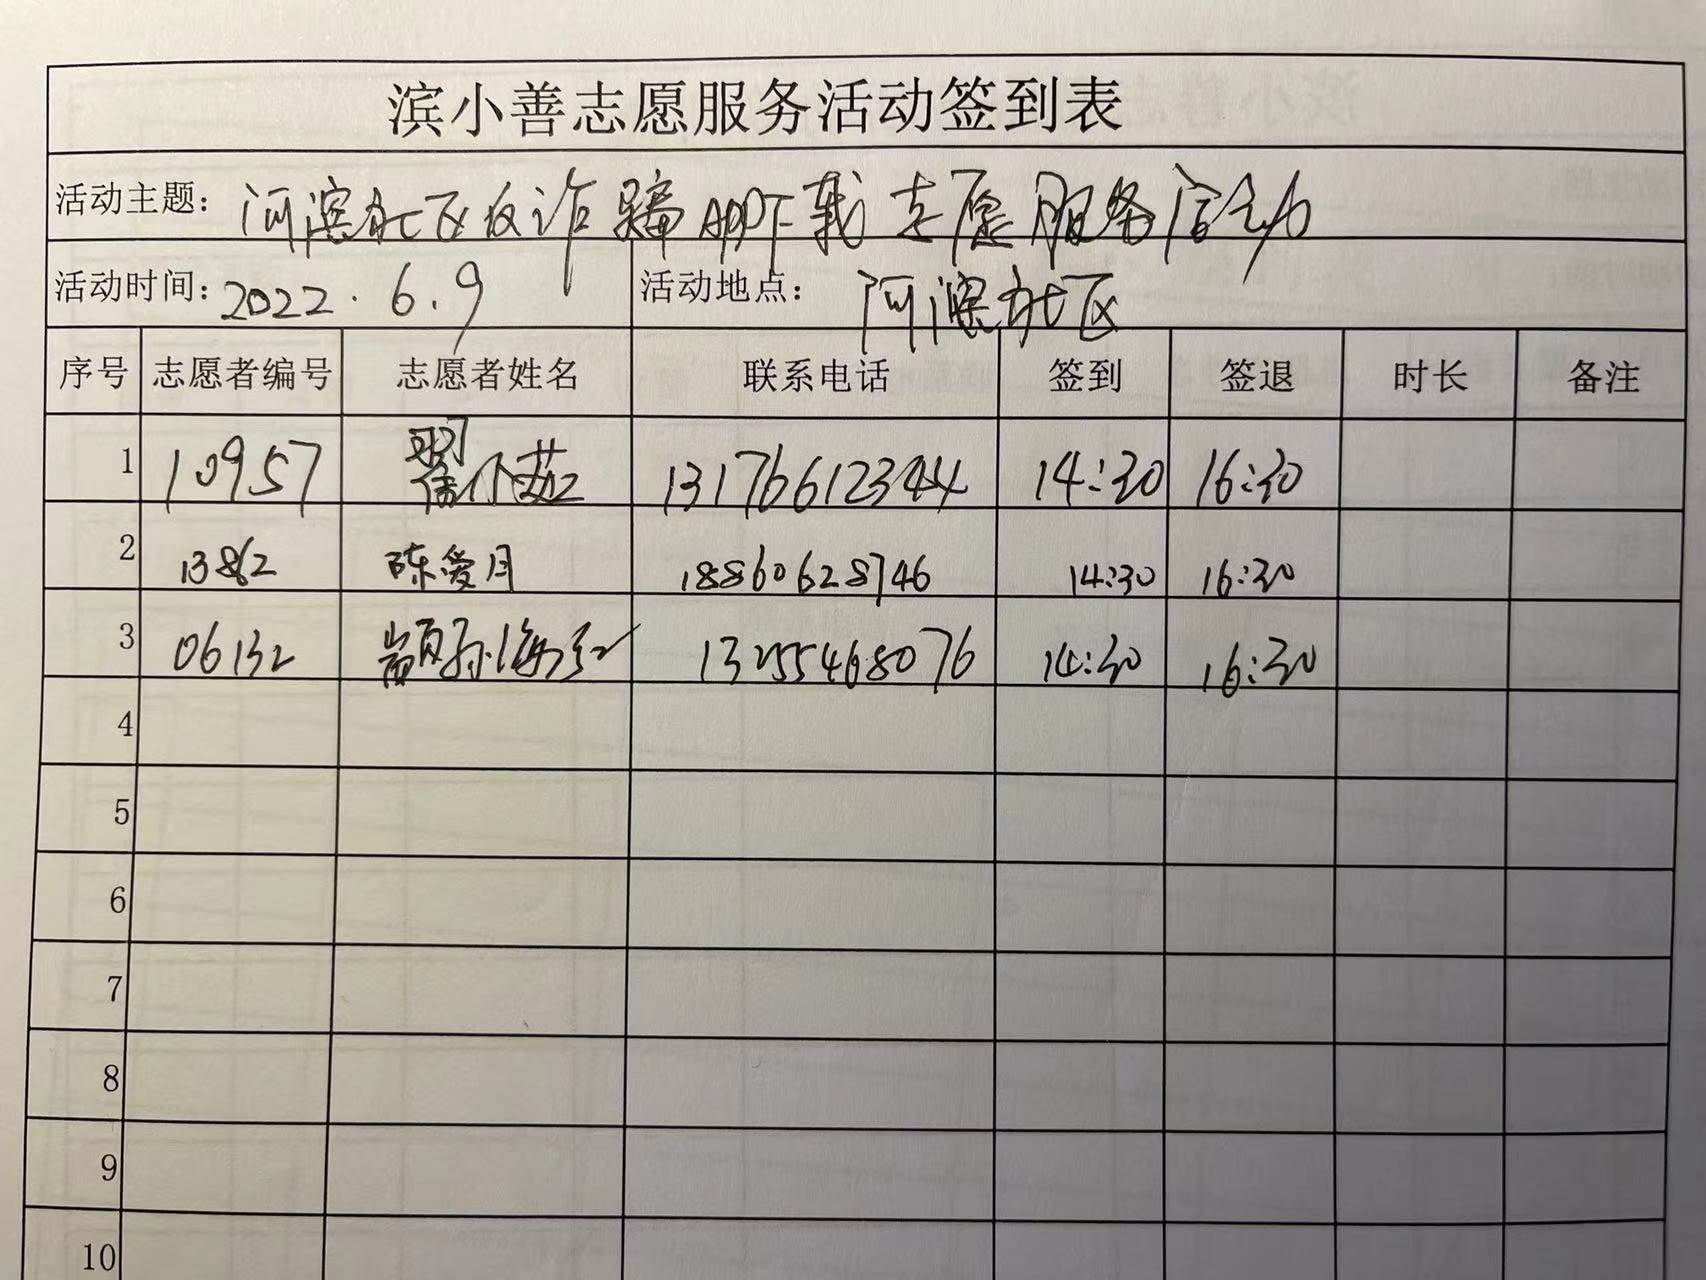 滨小善志愿服务活动签到表
活动主题: 河滨社区反诈骗APP下载志愿服务活动
活动时间: 2022.6.9 活动地点: 河滨社区
序号 志愿者编号 志愿者姓名 联系电话 签到 签退 时长 备注
1 10957 翟小茹 13176612344 14:30 16:30
2 13862 陈爱月 18860628746 14:30 16:30
3 06132 颛孙海红 13255468076 14:30 16:30
4
5
6
7
8
9
10